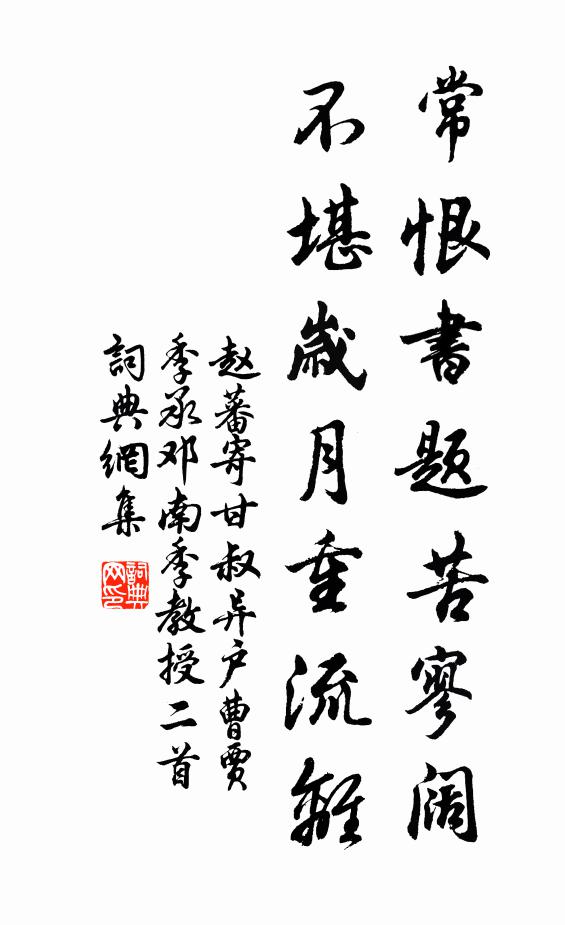 常恨書题苦寥阔
不堪歲月重流離
赵蕃寄甘叔异户曹贾
季承邓南季教授二首
詞典網集
詞典
网印